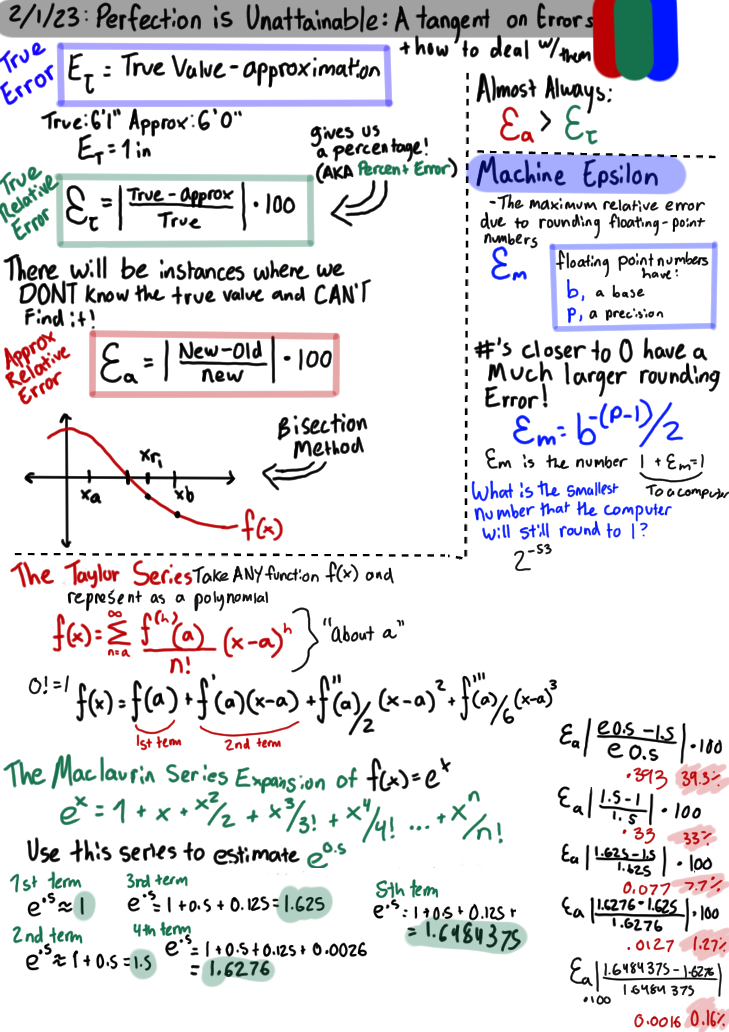 2/1/23: Perfection is Unattainable: A tangent on Errors
+ how to deal w/ them
True
Error
E_T = True Value - approximation
True: 6'1" Approx: 6'0"
E_T = 1 in
gives us
a percentage!
(AKA Percent Error)
True
Relative
Error
Ɛ_τ = |True - approx / True| · 100
There will be instances where we
DONT know the true value and CAN'T
Find it!
Approx
Relative
Error
Ɛa = |New - Old / new| · 100
Bisection
Method
xa
xr₁
xb
f(x)
Almost Always:
Ɛa > Ɛτ
Machine Epsilon
- The maximum relative error
due to rounding floating-point
numbers
Ɛm
floating point numbers
have:
b, a base
P, a precision
#'s closer to 0 have a
Much larger rounding
Error!
Ɛm = b^-(P-1)/2
Ɛm is the number 1 + Ɛm = 1
To a computer
What is the smallest
number that the computer
will still round to 1?
2^-53
The Taylor Series Take ANY function f(x) and
represent as a polynomial
f(x) = ∞ Σ n=a f^(n)(a) / n! (x-a)^n "About a"
0! = 1
f(x) = f(a) + f'(a)(x-a) + f''(a)/2 (x-a)² + f'''(a)/6 (x-a)³
1st term 2nd term
The Maclaurin Series Expansion of f(x) = e^x
e^x = 1 + x + x²/2 + x³/3! + x⁴/4! ... + x^n/n!
Use this series to estimate e^0.5
1st term
e^.5 ≈ 1
2nd term
e^.5 ≈ 1 + 0.5 = 1.5
3rd term
e^.5 = 1 + 0.5 + 0.125 = 1.625
4th term
e^.5 = 1 + 0.5 + 0.125 + 0.0026
= 1.6276
5th term
e^.5 = 1 + 0.5 + 0.125 +
= 1.6484375
Ɛa |e0.5 - 1.5 / e0.5| · 100
.393 39.3%
Ɛa |1.5 - 1 / 1.5| · 100
.33 33%
Ɛa |1.625 - 1.5 / 1.625| · 100
0.077 7.7%
Ɛa |1.6276 - 1.625 / 1.6276| · 100
.0127 1.27%
Ɛa |1.6484375 - 1.6276 / 1.6484375|
·100
0.0016 0.16%